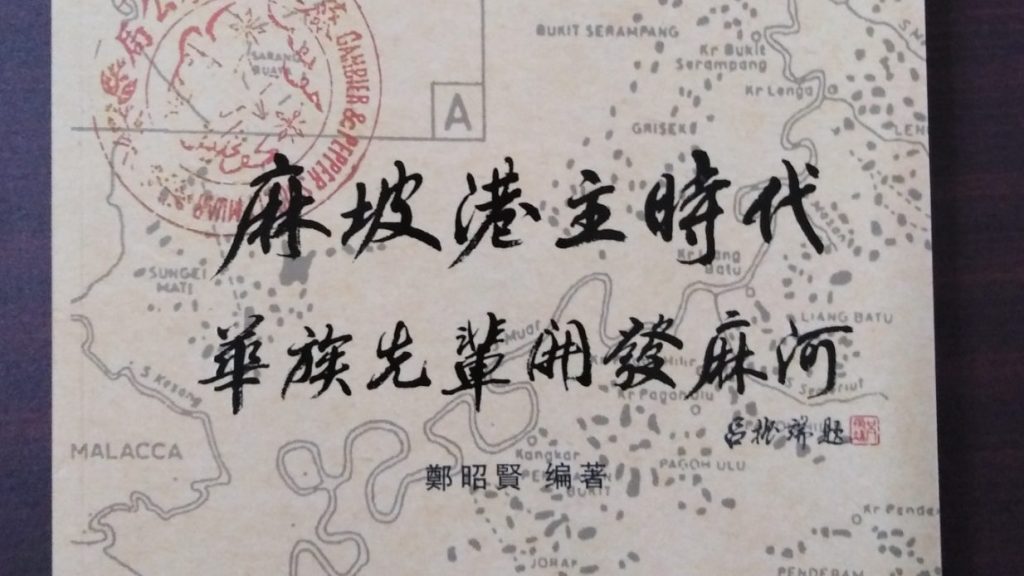 BUKIT SERAMPANG
Kr Bukit
Serampang
SARANG
BUAYA
GAMBIER & PEPPER
Kr Lenga
A
GRISEK
MUAR
麻坡港主時代
SUNGEI
MATI
Batu
LIANG BATU
Muar
華族先輩開發麻河
Kr Pagoh Ulu
S Kesang
呂振端題
MALACCA
Kangkar
PAGOH ULU
BUKIT
鄭昭賢 编著
JORAK
PENDERAM